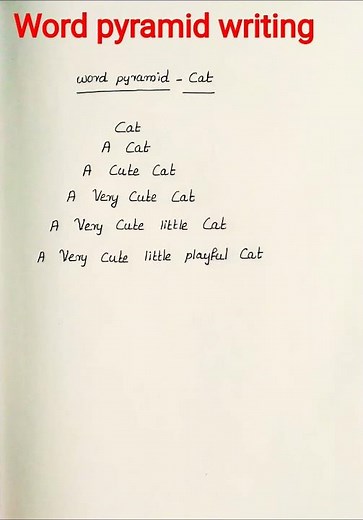 Word pyramid writing
word pyramid - Cat
Cat
A Cat
A Cute Cat
A Very Cute Cat
A Very Cute little Cat
A Very Cute little playful Cat